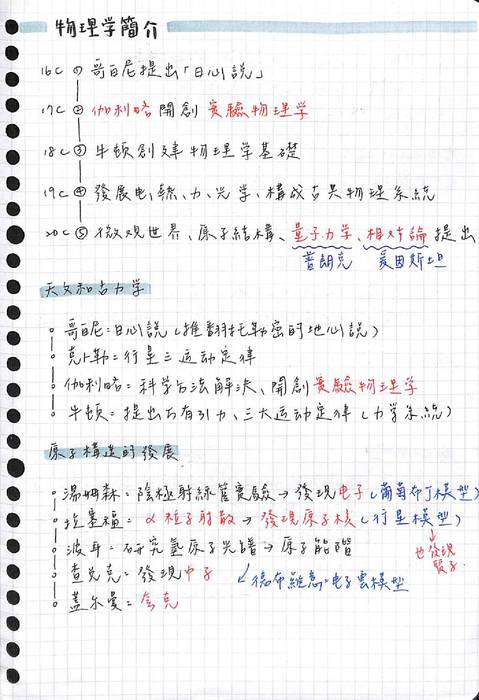 物理学簡介
16C ① 哥白尼提出「日心說」
17C ② 伽利略開創實驗物理学
18C ③ 牛頓創建物理学基礎
19C ④ 發展电、熱、力、光学、構成古典物理系統
20C ⑤ 微观世界、原子結構、量子力学、相对論提出
普朗克 愛因斯坦
天文和古力学
哥白尼：日心說（推翻托勒密的地心說）
克卜勒：行星三运动定律
伽利略：科学方法解決、開創實驗物理学
牛頓：提出万有引力、三大运动定律（力学系統）
原子構造的發展
湯姆森：陰極射線管實驗→發現电子（葡萄布丁模型）
拉塞福：α粒子射散→發現原子核（行星模型）
波耳：研究氫原子光譜→原子能階
也發現質子.
查兌克：發現中子
德布維意：电子雲模型
蓋尔曼：夸克